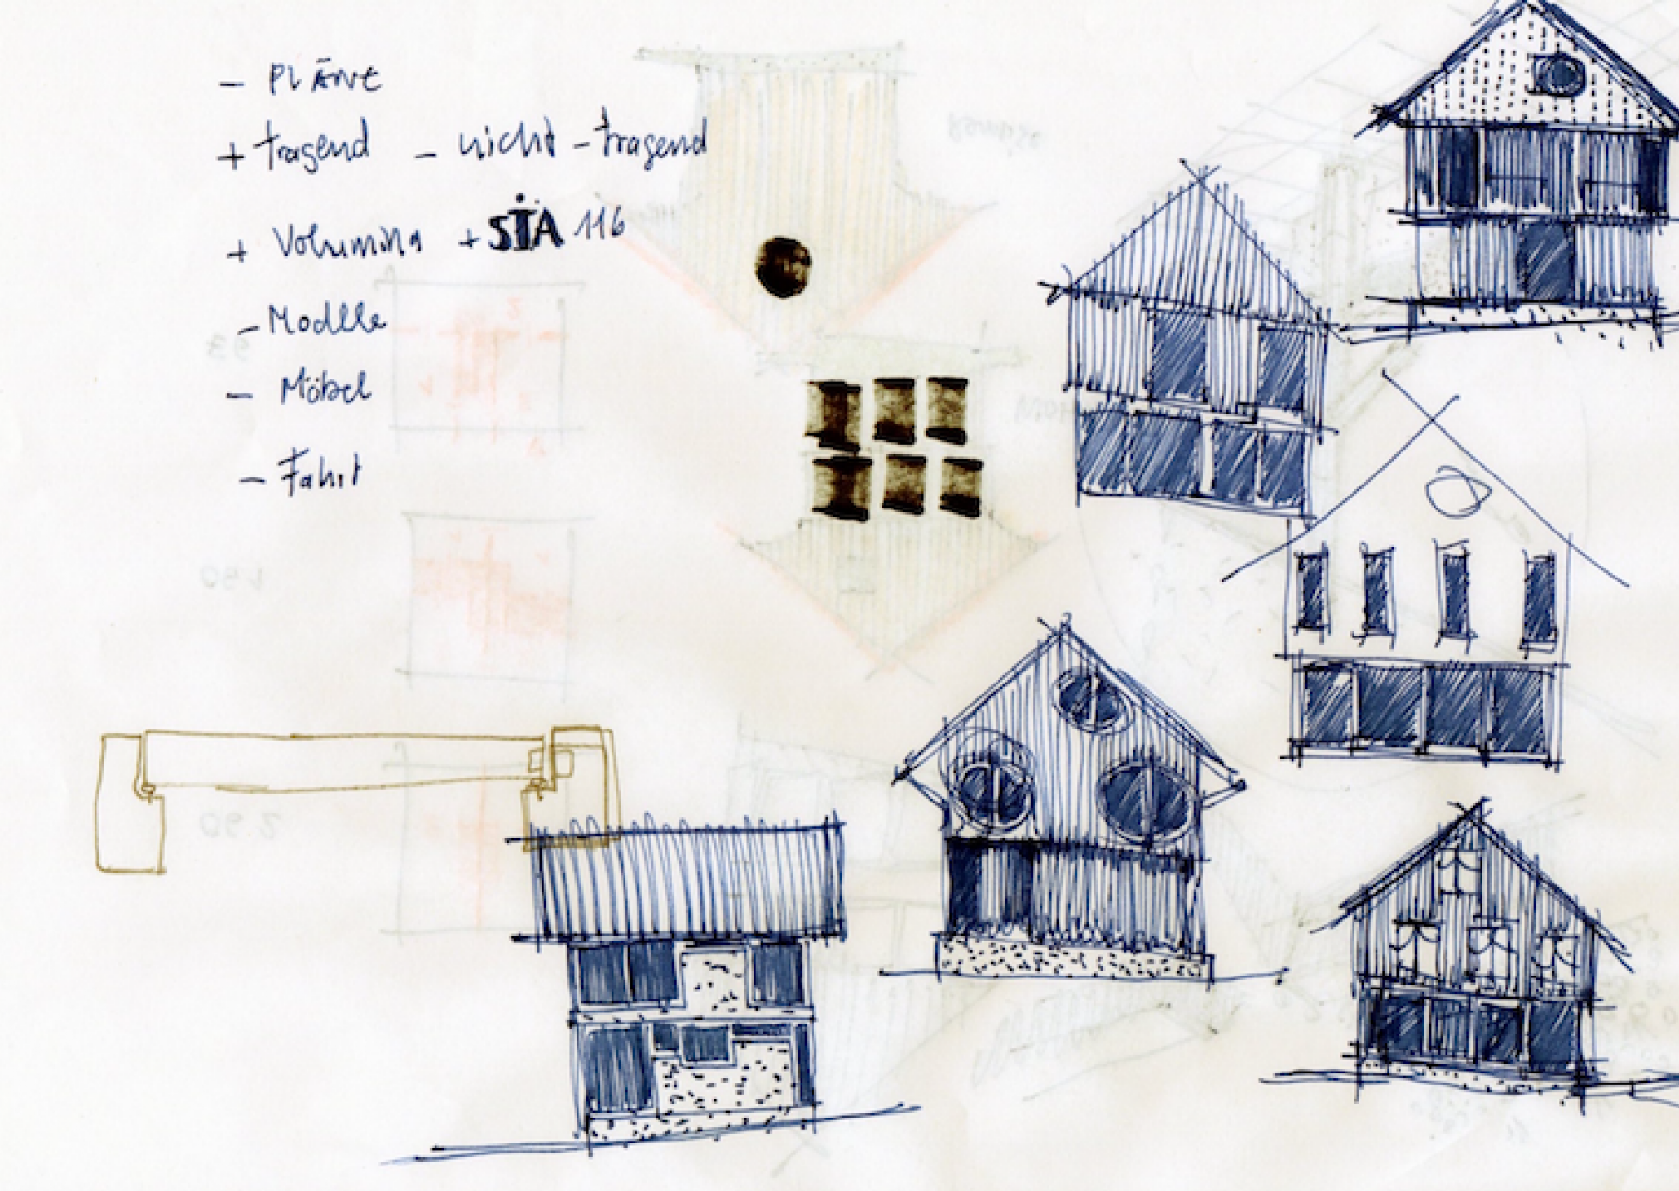 - Pläne
+ tragend - nicht - tragend
+ Volumina + SIA 116
- Modlle
- Möbel
- Fahrt